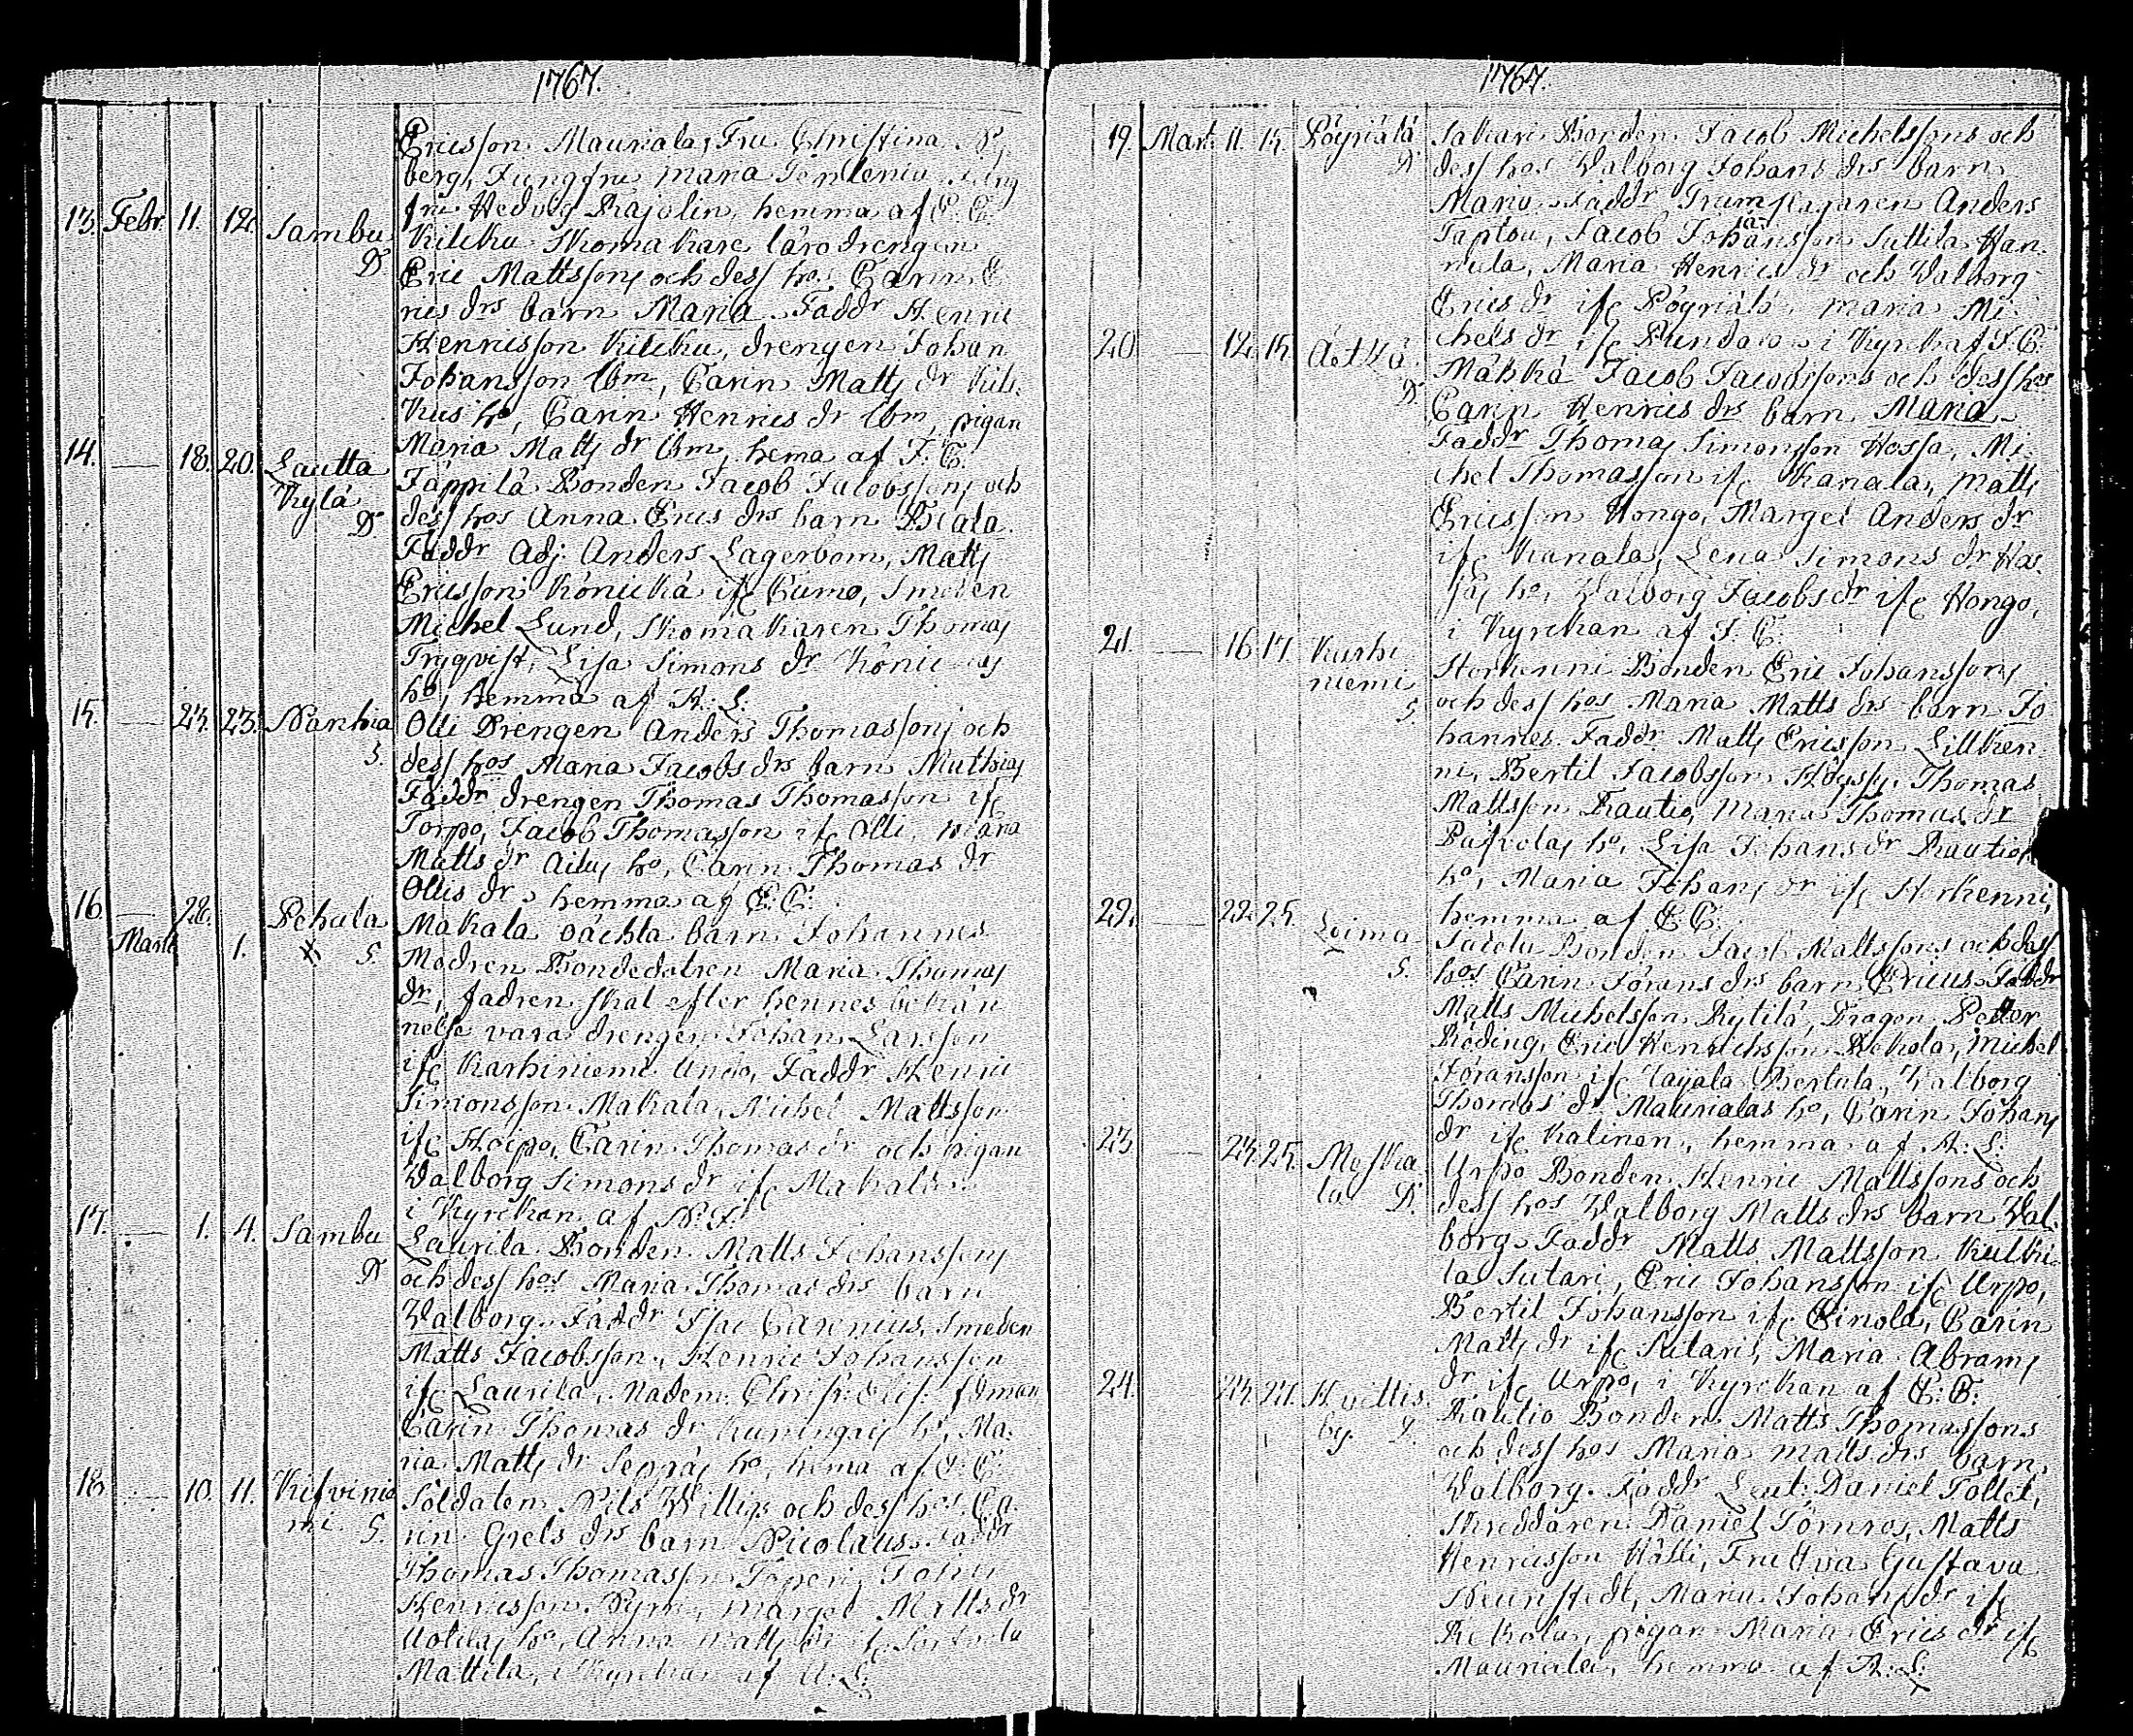 1767.
Ericsson Mauriala, Fru Christina
berg, Jungfru Maria
fru Hedvig Rajolin, hemma af
13. Febr. 11. 12. Sambu D.
Kilcku Skomakare läro drengen
Eric Mattssons och dess hos Carin E
rics drs barn Maria. Faddr Henric
Henricsson Kilcku, drengen Johan
Johansson ibm, Carin Matts dr Kilc
kus ho, Carin Henrics dr ibm, pigan
Maria Matts dr ibm, hema af
14. — 18. 20. Lautta Kylä D.
Jäppilä Bonden Jacob Jacobssons och
dess hos Anna Erics drs barn Beata.
Faddr Adj. Anders Lagerbom, Matts
Ericsson Könickä ifr Cumo, Smeden
Michel Lund, Skomakaren Thomas
Trygqvist, Lisa Simons dr
ho, hemma af
15. — 23. S.
Olli Drengen Anders Thomassons och
dess hos Maria Jacobs drs barn Mathias
Faddr drengen Thomas Thomasson ifr
Torpo, Jacob Thomasson ifr Olli, Maria
Matts dr ho, Carin Thomas dr
Ollis dr, hemma af
16. — 28. Martii 1. Pehula S.
Makala oäckta barn Johannes
Modren Bondedotren Maria Thomas
dr, fadren skal efter hennes bekän
nelse vara drengen Johan Larsson
ifr Karhiniemi Faddr Henric
Simonsson Makala, Michel Mattsson
ifr Hoipo, Carin Thomas dr och pigan
Walborg Simons dr ifr Makala
i Kyrckan af
17. — 1. 4. Sambu D
Laurila Bonden Matts Johanssons
och dess hos Maria Thomas drs barn
Walborg. Faddr Isac Carenius, Smeden
Matts Jacobsson, Henric Johansson
ifr Laurila,
Carin Thomas dr ho, Ma
ria Matts dr Seppäs ho, hema af
18. — 10. 11. S.
Soldaten Nils Willigs och dess hos Ca
rin Grels drs barn Nicolaus. Faddr
Thomas Thomasson
Henricsson Marget Matts dr
ho, Anna Matts dr ifr
Mattila, i Kyrckan af
1767.
19. Mart. 11. 15. Pöyriälä D
Sakari Bonden Jacob Michelssons och
dess hos Walborg Johans drs barn
Maria. Faddr Trumslagaren Anders
Taptou, Jacob Johansson Juttila Han
nula, Maria Henrics dr och Walborg
Erics dr ifr Pöyriälä, Maria Mi
chels dr ifr i Kyrck af
20. — 12. 15. D.
Mähkä Jacob Jacobssons och dess hos
Carin Henrics drs barn Maria
Faddr Thomas Simonsson Hossa, Mi
chel Thomasson ifr Kanala, Matts
Ericsson Hongo, Marget Anders dr
ifr Kanala, Lena Simons dr Hos
sas ho, Walborg Jacobs dr ifr Hongo,
i Kyrckan af
21. — 16. 17. Karhi niemi S.
Storkenni Bonden Eric Johanssons
och dess hos Maria Matts drs barn Jo
hannes. Faddr Matts Ericsson Lillken
ni, Bertil Jacobsson Thomas
Mattsson Rautio, Maria Thomas dr
ho, Lisa Johans dr Rautios
ho, Maria Johans dr ifr
hemma af
22. — 22. 25. Loima S.
Bonden Jacob Mattssons och dess
hos Carin Jörans drs barn Ericus Faddr
Matts Michelsson Rytilä, Dragon Petter
Röding, Eric Henrichsson Michel
Jöransson ifr Bertula, Walborg
Thomas dr Maurialas ho, Carin Johans
dr ifr Kalinen, hemma af
23. — 24. 25. D.
Urpo Bonden Henric Mattssons och
dess hos Walborg Matts drs barn Wal
borg. Faddr Matts Mattsson
la Sutari, Eric Johansson ifr Urpo,
Bertil Johansson ifr Carin
Matts dr ifr Sutaris, Maria Abrams
dr ifr Urpo, i Kyrckan af
24. 27. Hvittis by.
Rautio Bonden Matts Thomassons
och dess hos Maria Matts drs barn
Walborg. Faddr Leut: Daniel Tollet,
Skreddaren Daniel Törnros, Matts
Henricsson Hälli, Fru Eva Gustava
Maria Johans dr ifr
pigan Maria Erics dr ifr
Mauriala, hemma af